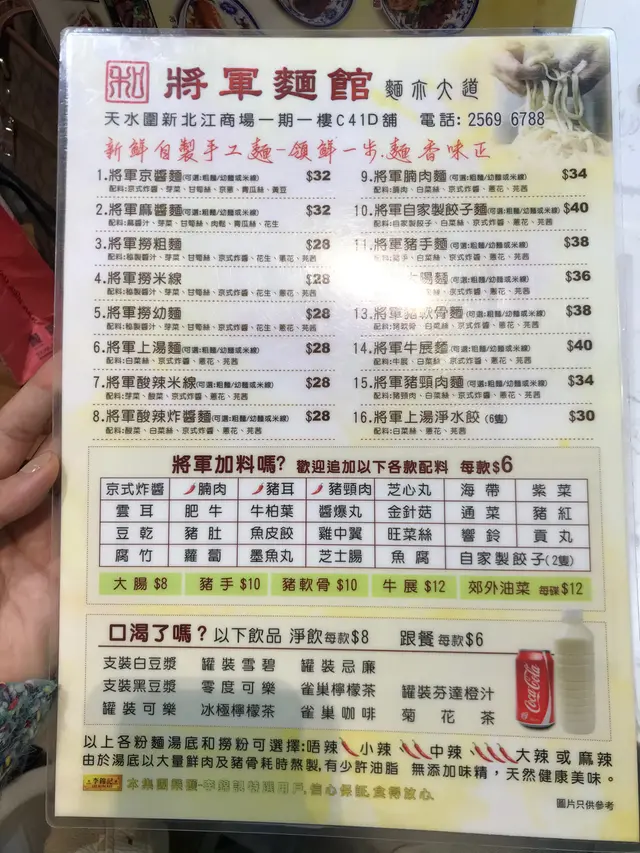 將軍麵館 麵亦大道
天水圍新北江商場一期一樓C41D舖 電話: 2569 6788
新鮮自製手工麵-領鮮一步,麵香味正
1.將軍京醬麵(可選:粗麵/幼麵或米線) $32
配料:京式炸醬、芽菜、甘筍絲、京蔥、青瓜絲、黃豆
2.將軍麻醬麵(可選:粗麵/幼麵或米線) $32
配料:麻醬汁、芽菜、甘筍絲、肉鬆、青瓜絲、花生
3.將軍撈粗麵 $28
配料:秘製醬汁、芽菜、甘筍絲、京式炸醬、花生、蔥花、芫茜
4.將軍撈米線 $28
配料:秘製醬汁、芽菜、甘筍絲、京式炸醬、花生、蔥花、芫茜
5.將軍撈幼麵 $28
配料:秘製醬汁、芽菜、甘筍絲、京式炸醬、花生、蔥花、芫茜
6.將軍上湯麵(可選:粗麵/幼麵或米線) $28
配料:白菜絲、京式炸醬、蔥花、芫茜
7.將軍酸辣米線(可選:粗麵/幼麵或米線) $28
配料:芽菜、酸菜、京式炸醬、蔥花、芫茜
8.將軍酸辣炸醬麵(可選:粗麵/幼麵或米線) $28
配料:酸菜、白菜絲、京式炸醬、蔥花、芫茜
9.將軍腩肉麵(可選:粗麵/幼麵或米線) $34
配料:腩肉、白菜絲、京式炸醬、蔥花、芫茜
10.將軍自家製餃子麵(可選:粗麵/幼麵或米線) $40
配料:自家製餃子、白菜絲、京式炸醬、蔥花、芫茜
11.將軍豬手麵(可選:粗麵/幼麵或米線) $38
豬手、白菜絲、京式炸醬、蔥花、芫茜
腸麵(可選:粗麵/幼麵或米線) $36
菜絲、京式炸醬、蔥花、芫茜
13.將軍豬軟骨麵(可選:粗麵/幼麵或米線) $38
配料:豬軟骨、白菜絲、京式炸醬、蔥花、芫茜
14.將軍牛展麵(可選:粗麵/幼麵或米線) $40
配料:牛展、白菜絲、京式炸醬、蔥花、芫茜
15.將軍豬頸肉麵(可選:粗麵/幼麵或米線) $34
配料:豬頸肉、白菜絲、京式炸醬、蔥花、芫茜
16.將軍上湯淨水餃(6隻) $30
配料:白菜絲、蔥花、芫茜
將軍加料嗎? 歡迎追加以下各款配料 每款$6
京式炸醬 腩肉 豬耳 豬頸肉 芝心丸 海帶 紫菜
雲耳 肥牛 牛柏葉 醬爆丸 金針菇 通菜 豬紅
豆乾 豬肚 魚皮餃 雞中翼 旺菜絲 響鈴 貢丸
腐竹 蘿蔔 墨魚丸 芝士腸 魚腐 自家製餃子(2隻)
大腸$8 豬手$10 豬軟骨$10 牛展$12 郊外油菜 每碟$12
口渴了嗎? 以下飲品 淨飲每款$8 跟餐每款$6
支裝白豆漿 罐裝雪碧 罐裝忌廉
支裝黑豆漿 零度可樂 雀巢檸檬茶 罐裝芬達橙汁
罐裝可樂 冰極檸檬茶 雀巢咖啡 菊花茶
Coca-Cola
以上各粉麵湯底和撈粉可選擇:唔辣 小辣 中辣 大辣 或 麻辣
由於湯底以大量鮮肉及豬骨耗時熬製,有少許油脂 無添加味精,天然健康美味。
李錦記 本集團榮獲-李錦記特選用戶,信心保証,食得放心.
圖片只供參考